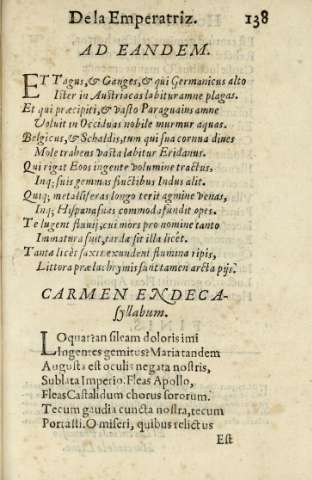 De la Emperatriz. 138
AD EANDEM.
ET Tagus, & Ganges, & qui Germanicus alto
Ister in Austriacas labitur amne plagas.
Et qui præcipiti, & vasto Paraguais amne
Voluit in Occiduas nobile murmur aquas.
Belgicus, & Schaldis, tum qui sua cornua dines
Mole trahens vasta labitur Eridanus.
Qui rigat Eoos ingente volumine tractus,
Inq; suis gemmas fluctibus Indus alit.
Quiq; metalliferas longo terit agmine venas,
Inq; Hispanas suas commoda fundit opes.
Te lugent fluuij, cui mors pro nomine tanto
Immatura fuit, tarda sit illa licet.
Tanta licet saxis exundent flumina ripis,
Littora præ lachrymis sunt tamen arcta pijs.
CARMEN ENDECA-
syllabum.
LOquar? an sileam doloris imi
Ingentes gemitus? Maria tandem
Augusta est oculis negata nostris,
Sublata Imperio. Fleas Apollo,
Fleas Castalidum chorus sororum.
Tecum gaudia cuncta nostra, tecum
Portasti. O miseri, quibus relictus
Est